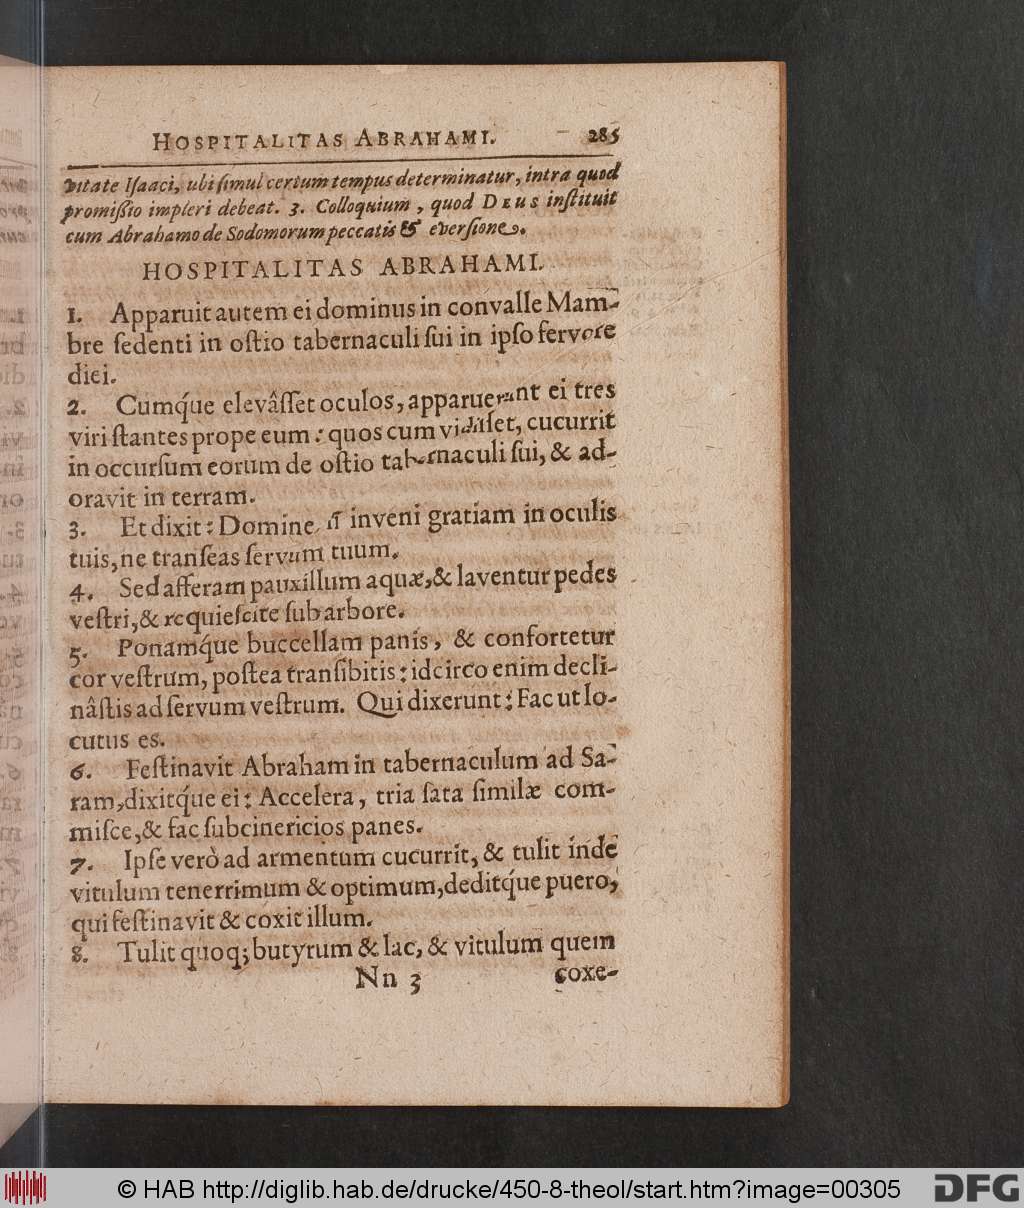 HOSPITALITAS ABRAHAMI. 285
vitate Iſaaci, ubi ſimul certum tempus determinatur, intra quod
promiſſio impleri debeat. 3. Colloquium, quod DEUS inſtituit
cum Abrahamo de Sodomorum peccatis & everſione.
HOSPITALITAS ABRAHAMI.
1. Apparuit autem ei dominus in convalle Mam-
bre ſedenti in oſtio tabernaculi ſui in ipſo fervore
diei.
2. Cumq́ue elevâſſet oculos, apparuerunt ei tres
viri ſtantes prope eum: quos cum vidiſſet, cucurrit
in occurſum eorum de oſtio tabernaculi ſui, & ad-
oravit in terram.
3. Et dixit: Domine, ſi inveni gratiam in oculis
tuis, ne tranſeas ſervum tuum.
4. Sed afferam pauxillum aquæ, & laventur pedes
veſtri, & requieſcite ſub arbore.
5. Ponamq́ue buccellam panis, & confortetur
cor veſtrum, poſtea tranſibitis: idcirco enim decli-
nâſtis ad ſervum veſtrum. Qui dixerunt: Fac ut lo-
cutus es.
6. Feſtinavit Abraham in tabernaculum ad Sa-
ram, dixitq́ue ei: Accelera, tria ſata ſimilæ com-
miſce, & fac ſubcinericios panes.
7. Ipſe verò ad armentum cucurrit, & tulit inde
vitulum tenerrimum & optimum, deditq́ue puero,
qui feſtinavit & coxit illum.
8. Tulit quoq; butyrum & lac, & vitulum quem
Nn 3 coxe-
© HAB http://diglib.hab.de/drucke/450-8-theol/start.htm?image=00305 DFG